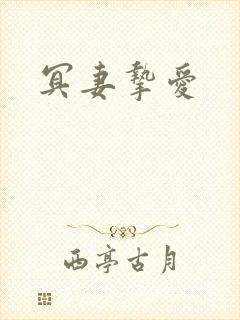 冥妻挚爱
西亭古月